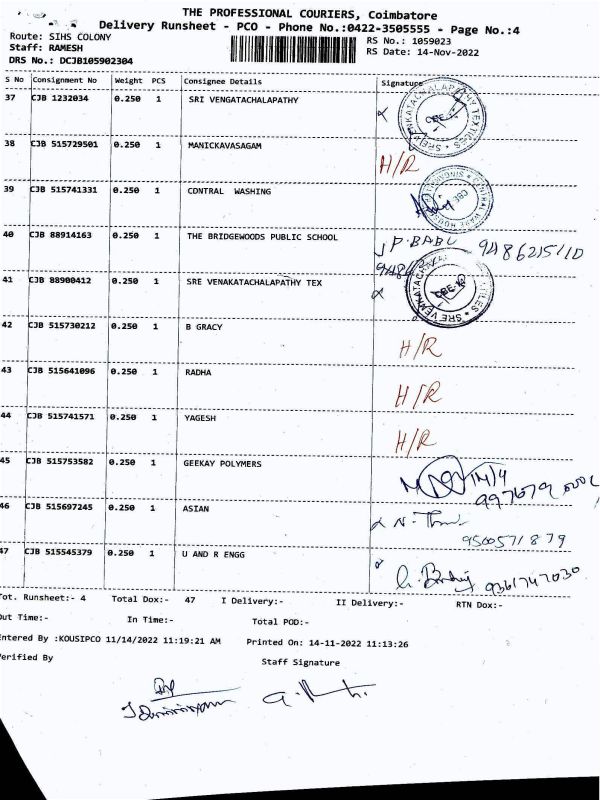 THE PROFESSIONAL COURIERS, Coimbatore
Delivery Runsheet - PCO - Phone No.:0422-3505555 - Page No.:4
Route: SIHS COLONY RS No.: 1059023
Staff: RAMESH RS Date: 14-Nov-2022
DRS No.: DCJB105902304
S No Consignment No Weight PCS Consignee Details Signature
37 CJB 1232034 0.250 1 SRI VENGATACHALAPATHY
38 CJB 515729501 0.250 1 MANICKAVASAGAM H/R
39 CJB 515741331 0.250 1 CONTRAL WASHING
40 CJB 88914163 0.250 1 THE BRIDGEWOODS PUBLIC SCHOOL P. BABU 9486215110
41 CJB 88900412 0.250 1 SRE VENAKATACHALAPATHY TEX
42 CJB 515730212 0.250 1 B GRACY H/R
43 CJB 515641096 0.250 1 RADHA H/R
44 CJB 515741571 0.250 1 YAGESH H/R
45 CJB 515753582 0.250 1 GEEKAY POLYMERS
46 CJB 515697245 0.250 1 ASIAN 9500571879
47 CJB 515545379 0.250 1 U AND R ENGG 9361747030
Tot. Runsheet:- 4 Total Dox:- 47 I Delivery:- II Delivery:- RTN Dox:-
Out Time:- In Time:- Total POD:-
Entered By :KOUSIPCO 11/14/2022 11:19:21 AM Printed On: 14-11-2022 11:13:26
Verified By Staff Signature